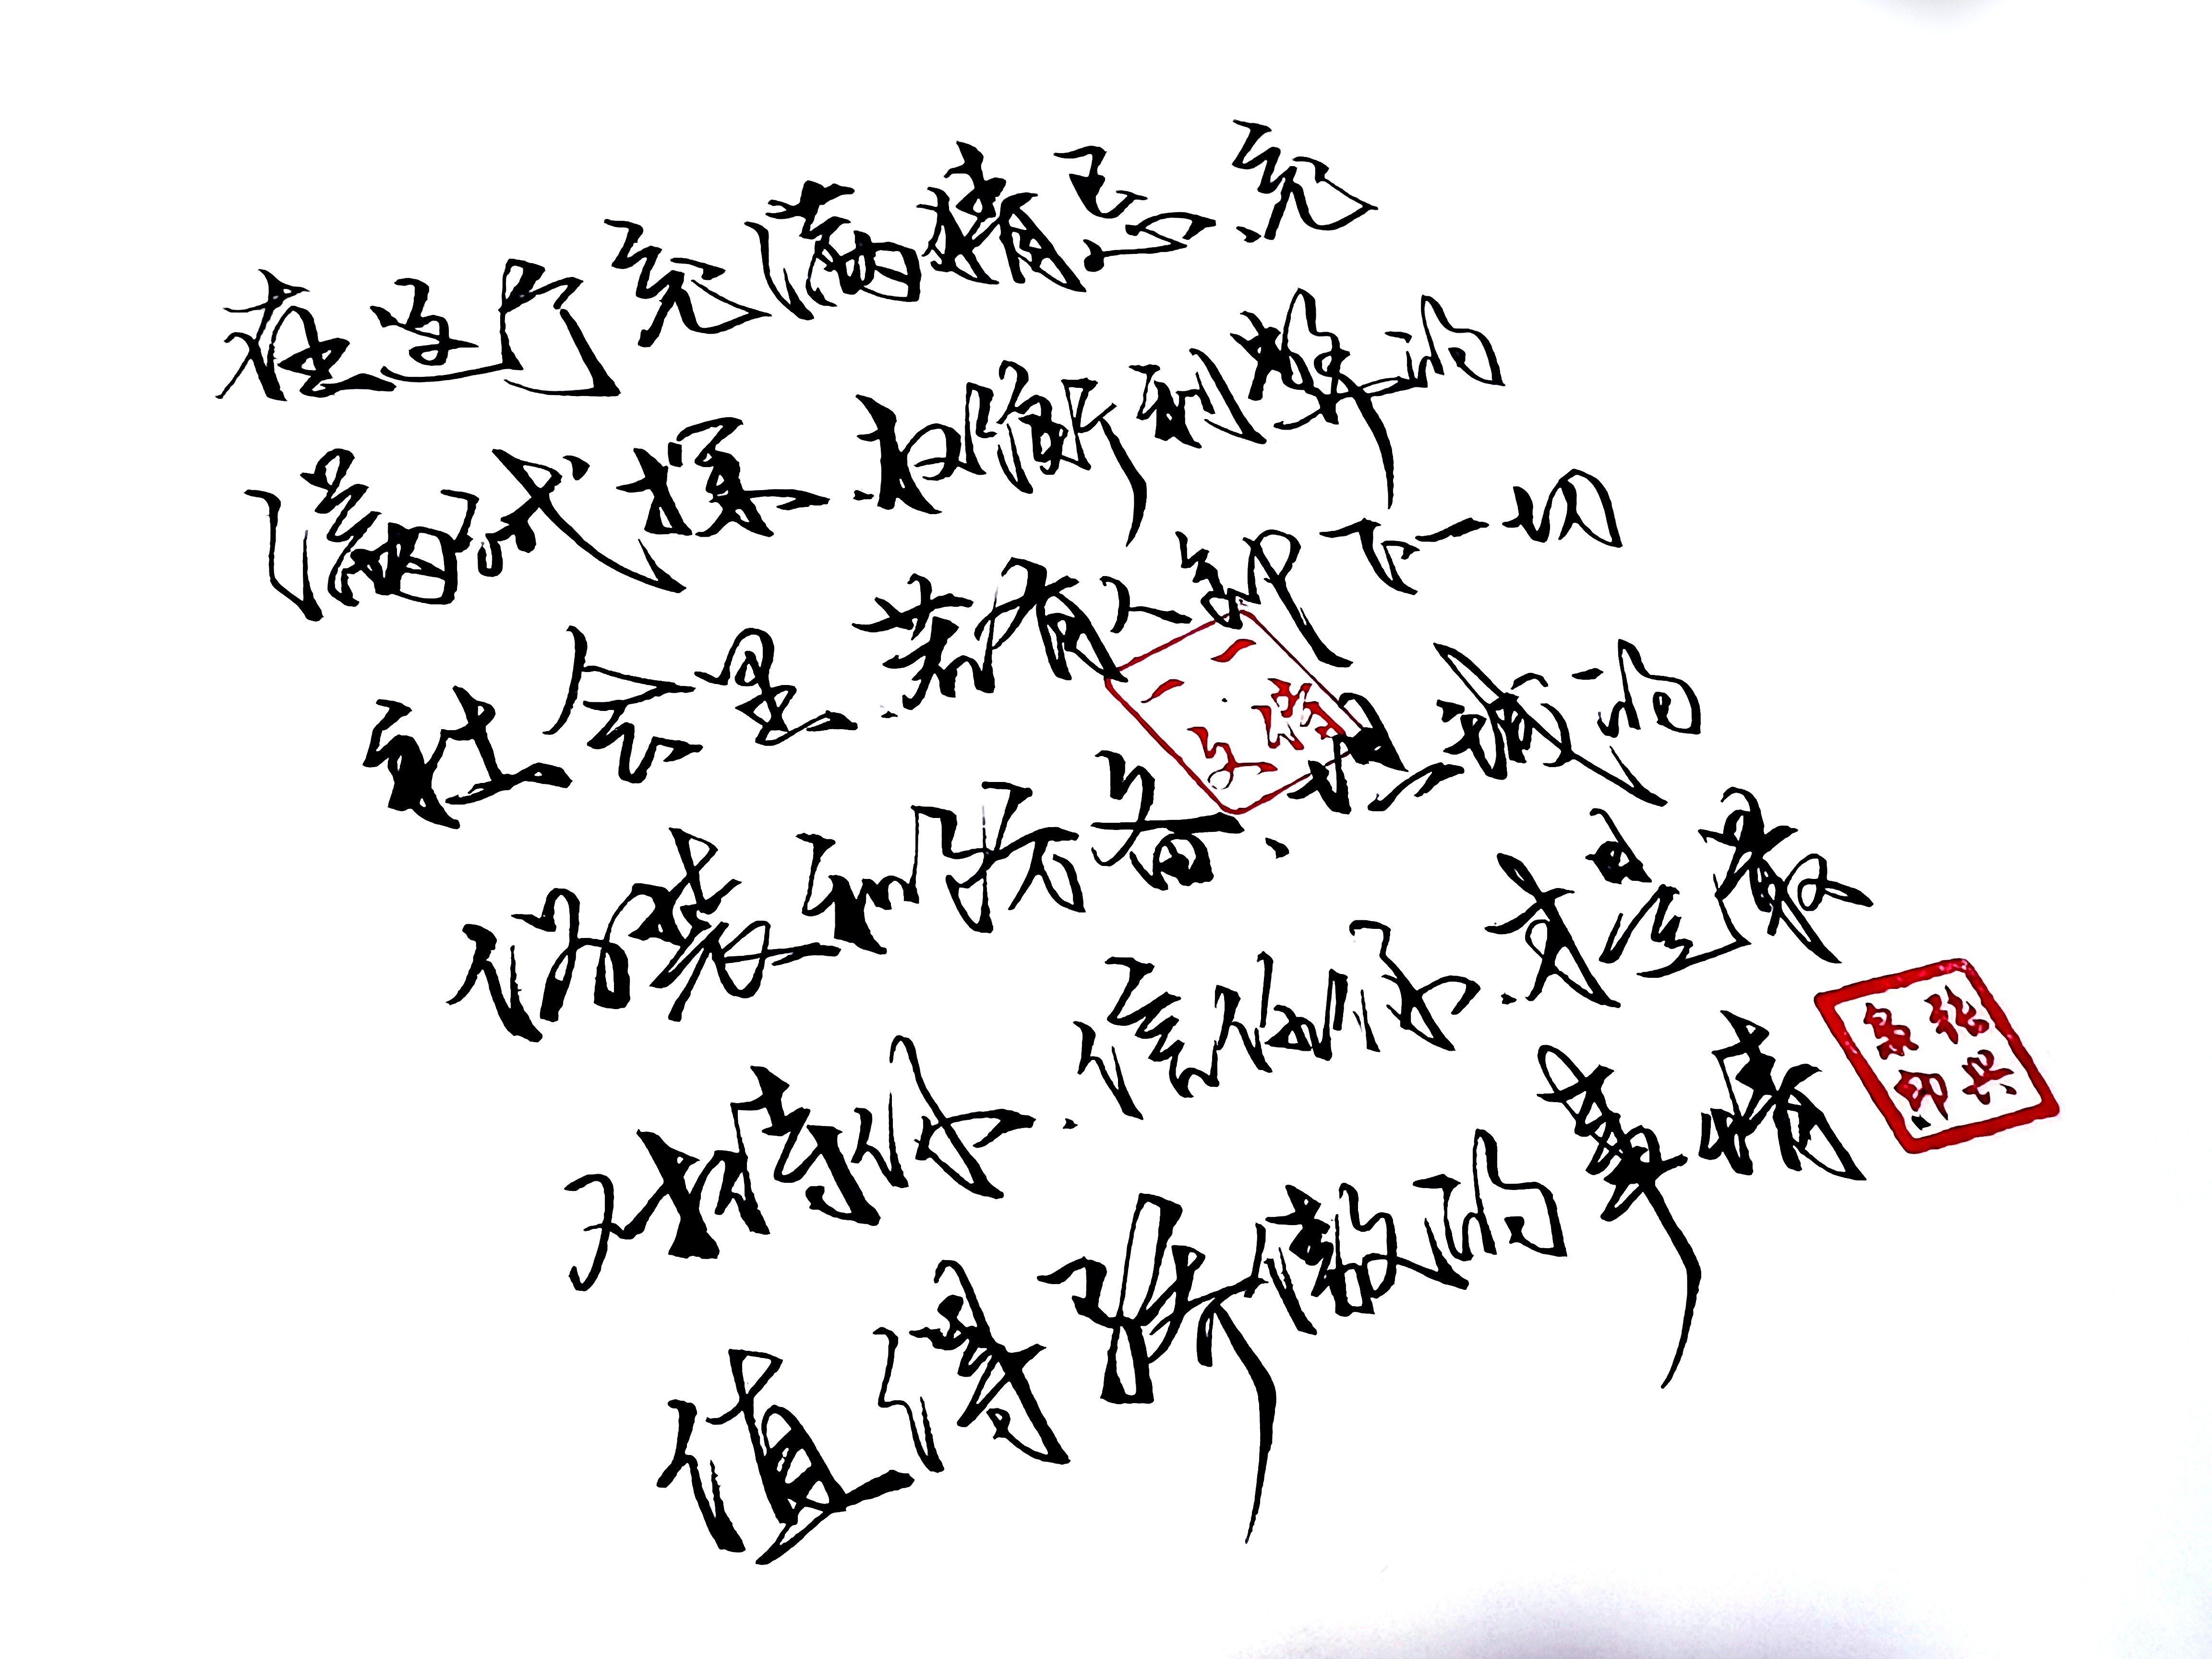 在这个充满猜忌.充
满试探.和衡利弊的
社会里.若有人卸下一切
伪装和防备.坦诚的
对待你.信任你.才是最
值得骄傲的事情
张兴
泉印